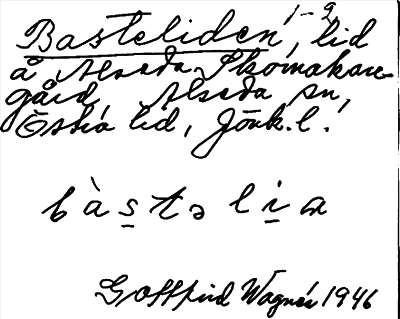 1-2
Basteliden, lid
å Alseda Skomakare-
gård, Alseda sn,
Östra hd, Jönk. l.
bàstə lia
Gottfrid Wagnér 1946